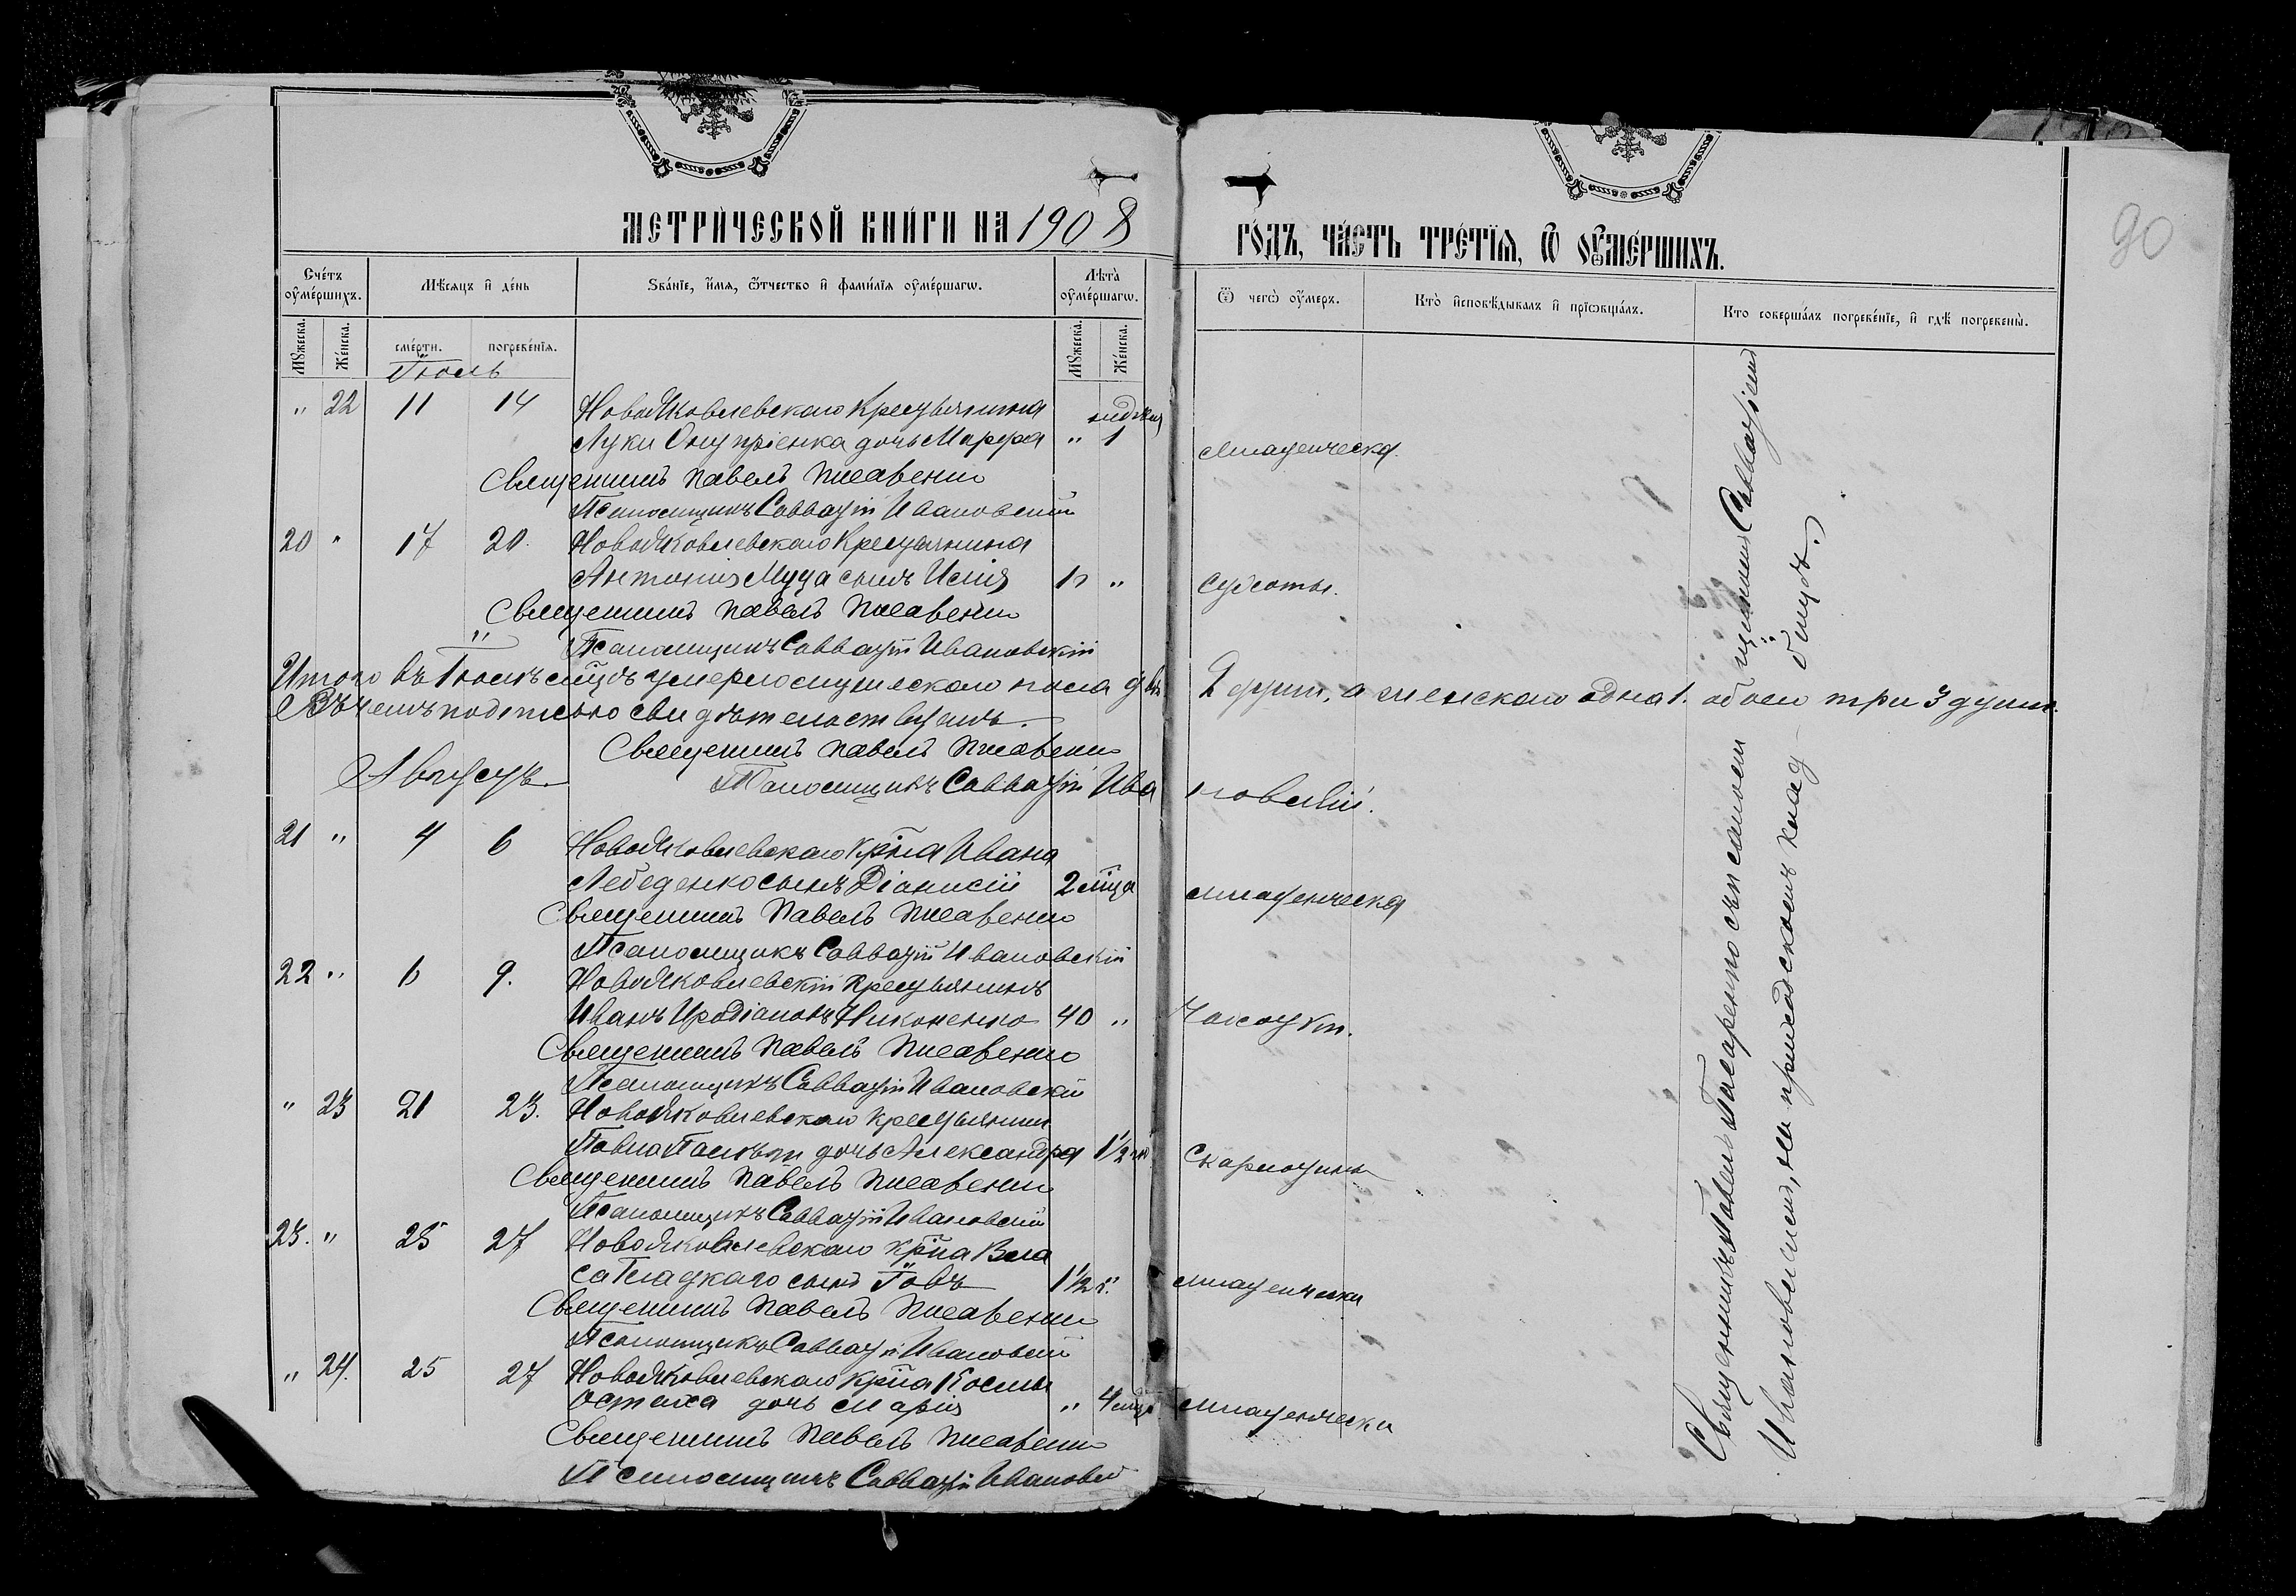 МЕТРИЧЕСКОЙ КНИГИ НА 1908
ГОДЪ, ЧАСТЬ ТРЕТІЯ, Ѿ ОУМЕРШИХЪ.
90
Счетъ оумершихъ.
Мѣсяцъ и день
Званіе, имя, ѿтчество и фамилія оумершагѡ.
Лѣта оумершагѡ.
Ѿ чегѡ оумеръ.
Кто исповѣдывалъ и пріѡбщалъ.
Кто совершалъ погребеніе, и гдѣ погребены.
Мужеска. Женска. смерти. погребенія. Мужеска. Женска.
Іюль
" 22 11 14 Новояковлевскаго Крестьянина
Луки Онупріенка дочь Марфа " 1 Младенческа.
Священникъ Павелъ Писаренко
Псаломщикъ Савватій Ивановскій
20 " 17 20. Новояковлевскаго Крестьянина
Антонія сынъ "
Священникъ Павелъ Писаренко
Псаломщикъ Савватій Ивановскій
Итого въ Іюлѣ мцѣ умерло мужескаго пола двѣ 2 души, а женскаго одна 1. обоего три 3 души.
Въ чемъ подписью свидѣтельствуемъ.
Священникъ Павелъ Писаренко
Августъ
Псаломщикъ Савватій Ивановскій.
21 " 4 6 Новояковлевскаго кр҃на Ивана
Лебеденко сынъ Діонисій 2 мца младенческа
Священникъ Павелъ Писаренко
Псаломщикъ Савватій Ивановскій
22 " 6 9. Новояковлевскій крестьянинъ
Иванъ Иродіоновъ Никоненко 40 " Чахотки.
Священникъ Павелъ Писаренко
Псаломщикъ Савватій Ивановскій
" 23 21 23. Новояковлевскаго крестьянина
Павла дочь Александра 1½ Скарлатины
Священникъ Павелъ Писаренко
Псаломщикъ Савватій Ивановскій
23. " 25 27 Новояковлевскаго кр҃на Вла
са Гладкаго сынъ Іовъ 1½ г. младенческа
Священникъ Павелъ Писаренко
Псаломщикъ Савватій Ивановскій
" 24. 25 27 Новояковлевскаго кр҃на Космы
Остапа дочь Марія " 4 мца младенческа
Священникъ Павелъ Писаренко
Псаломщикъ Савватій Ивановскій
Священникъ Павелъ Писаренко съ псаломщикомъ Савватіемъ
Ивановскимъ, на приходскомъ кладбищѣ.